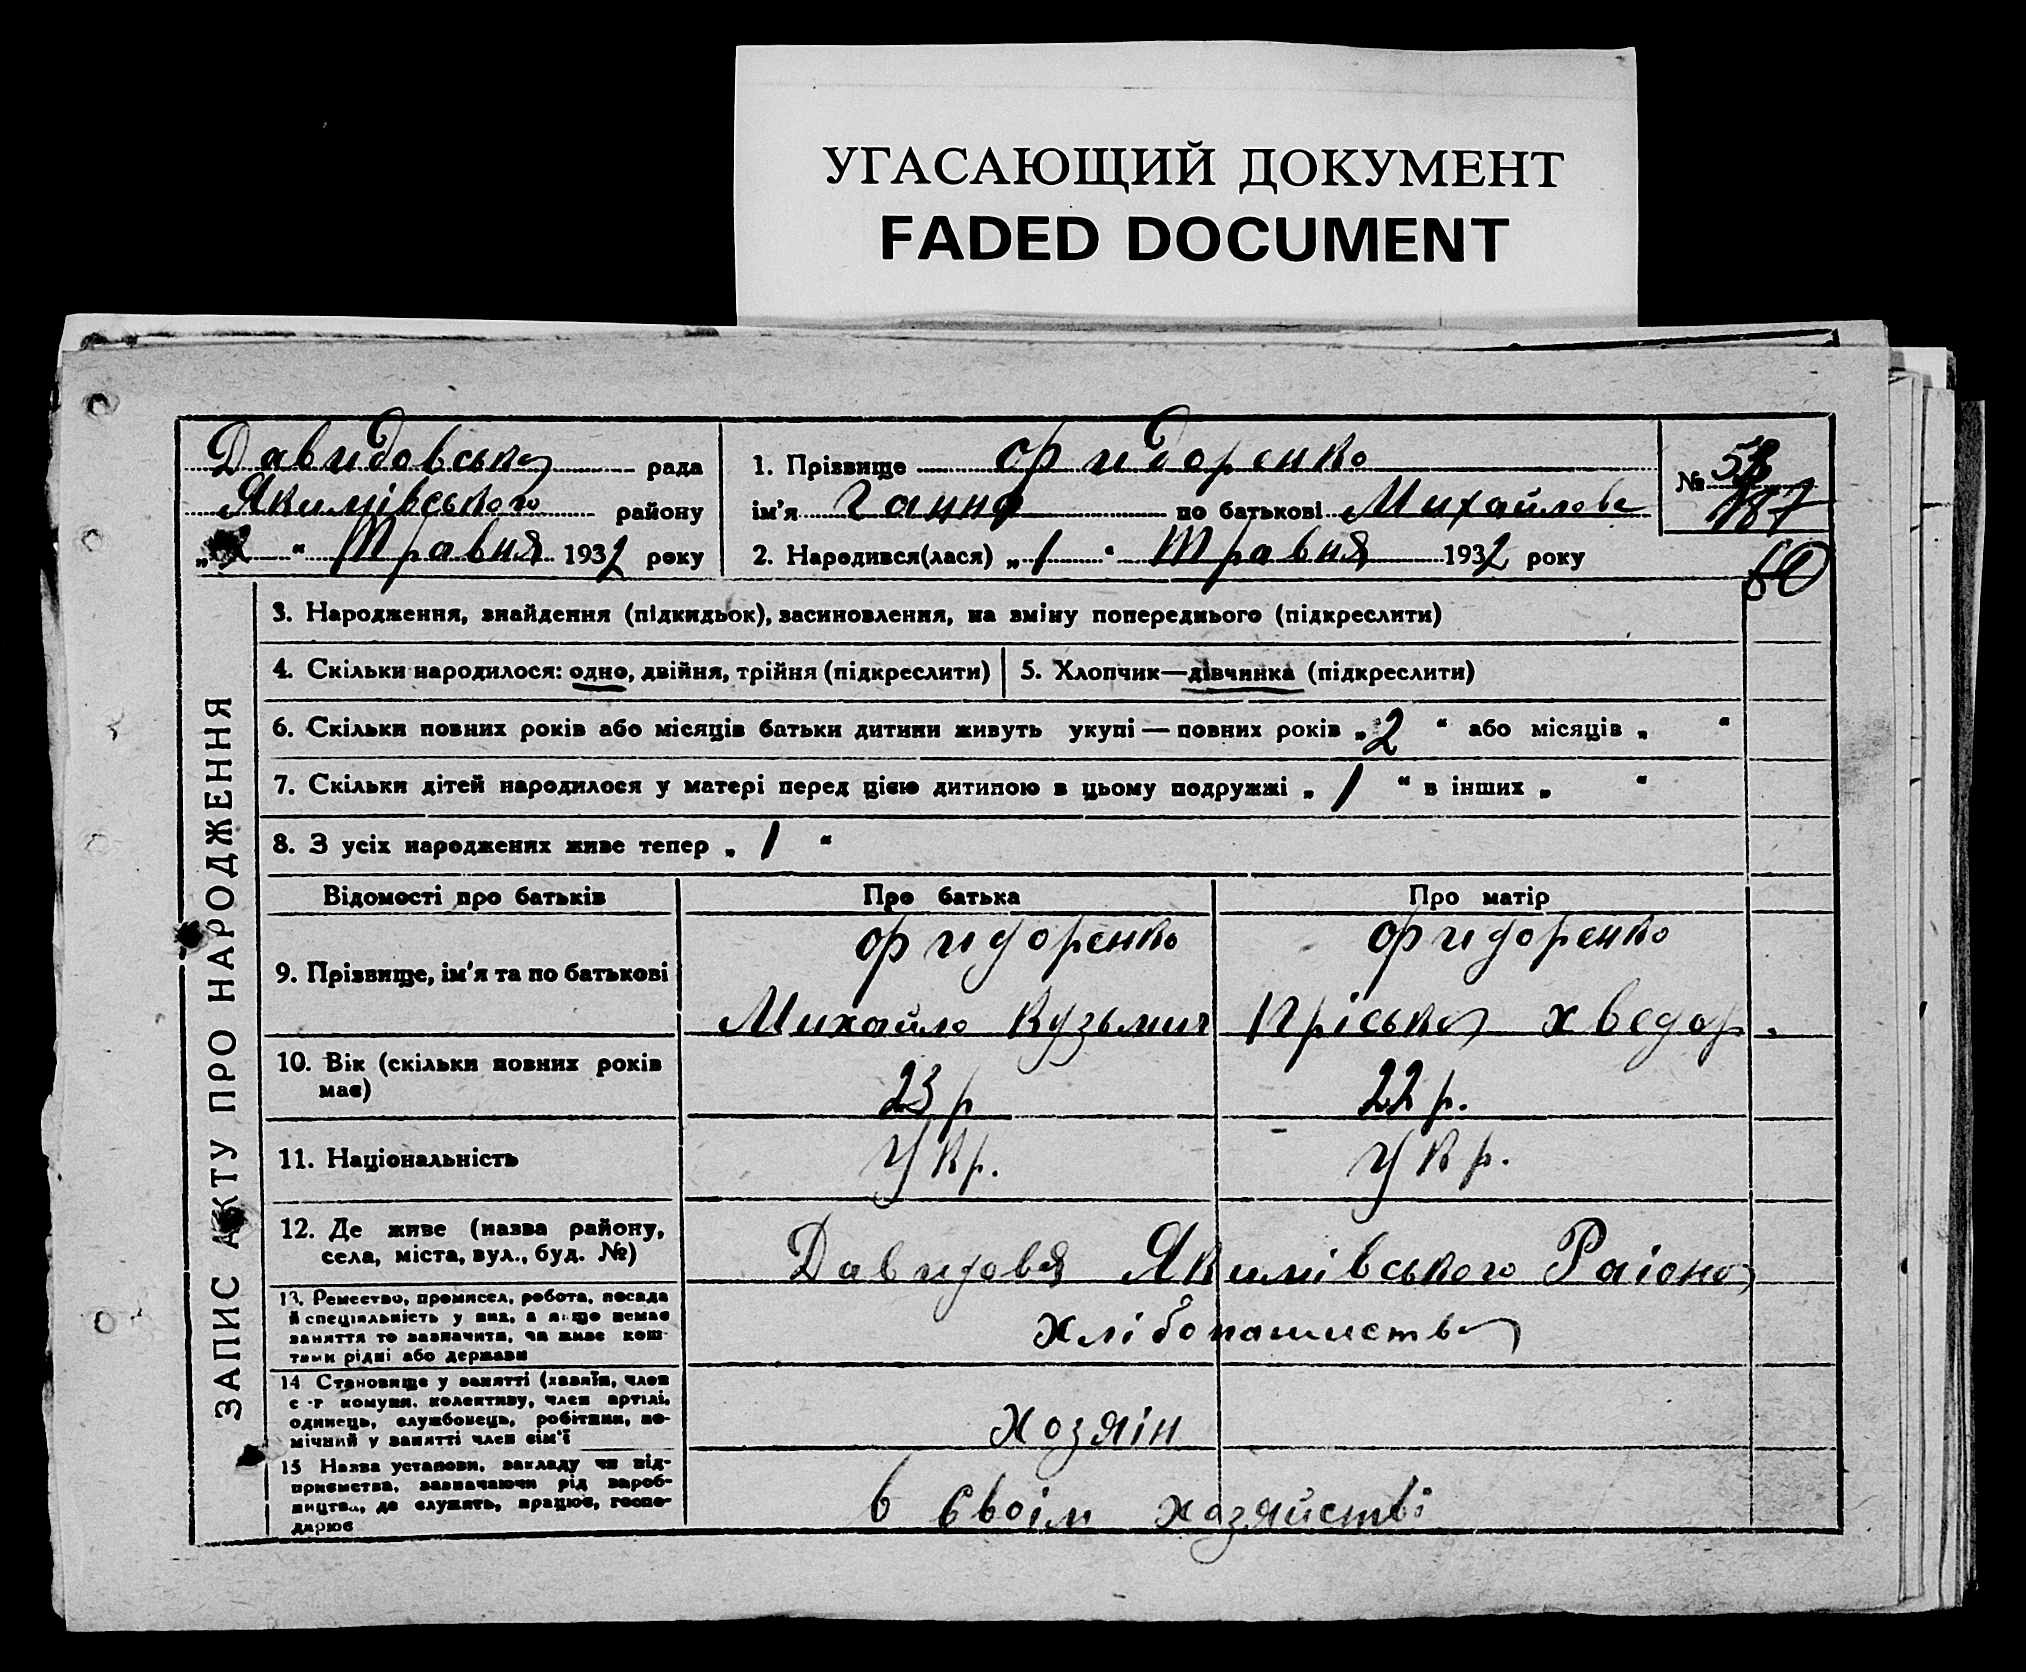 УГАСАЮЩИЙ ДОКУМЕНТ
FADED DOCUMENT
Давидовська рада
Якимівського району
„2“ Травня 1932 року
1. Прізвище Фидоренко
ім'я Ганна по батькові Михайлове
2. Народився(лася) „1“ Травня 1932 року
№ 58
187
60
ЗАПИС АКТУ ПРО НАРОДЖЕННЯ
3. Народження, знайдення (підкидьок), засиновлення, на зміну попереднього (підкреслити)
4. Скільки народилося: одно, двійня, трійня (підкреслити)
5. Хлопчик—дівчинка (підкреслити)
6. Скільки повних років або місяців батьки дитини живуть укупі — повних років „2“ або місяців „ “
7. Скільки дітей народилося у матері перед цією дитиною в цьому подружжі „1“ в інших „ “
8. З усіх народжених живе тепер „1“
Відомості про батьків
Про батька
Про матір
9. Прізвище, ім'я та по батькові
Фидоренко
Михайло Кузьмич
Фидоренко
Пріська Хведор.
10. Вік (скільки повних років
має)
23 р
22 р.
11. Національність
Укр.
Укр.
12. Де живе (назва району,
села, міста, вул., буд. №)
Давидовя Якимівського Раіона
13. Ремество, промисел, робота, посада
й спеціяльність у них, а якщо немає
заняття то зазначити, чи живе кош-
тами рідні або держави
Хлібопашиство
14 Становище у занятті (хазяїн, член
с.-г комуни, колективу, член артілі,
одинець, службовець, робітник, по-
мічний у занятті член сім'ї
Хозяін
15 Назва установи, закладу чи під-
приємства, зазначаючи рід вироб-
ництва, де служить, працює, госпо-
дарює
в своім хозяйстві